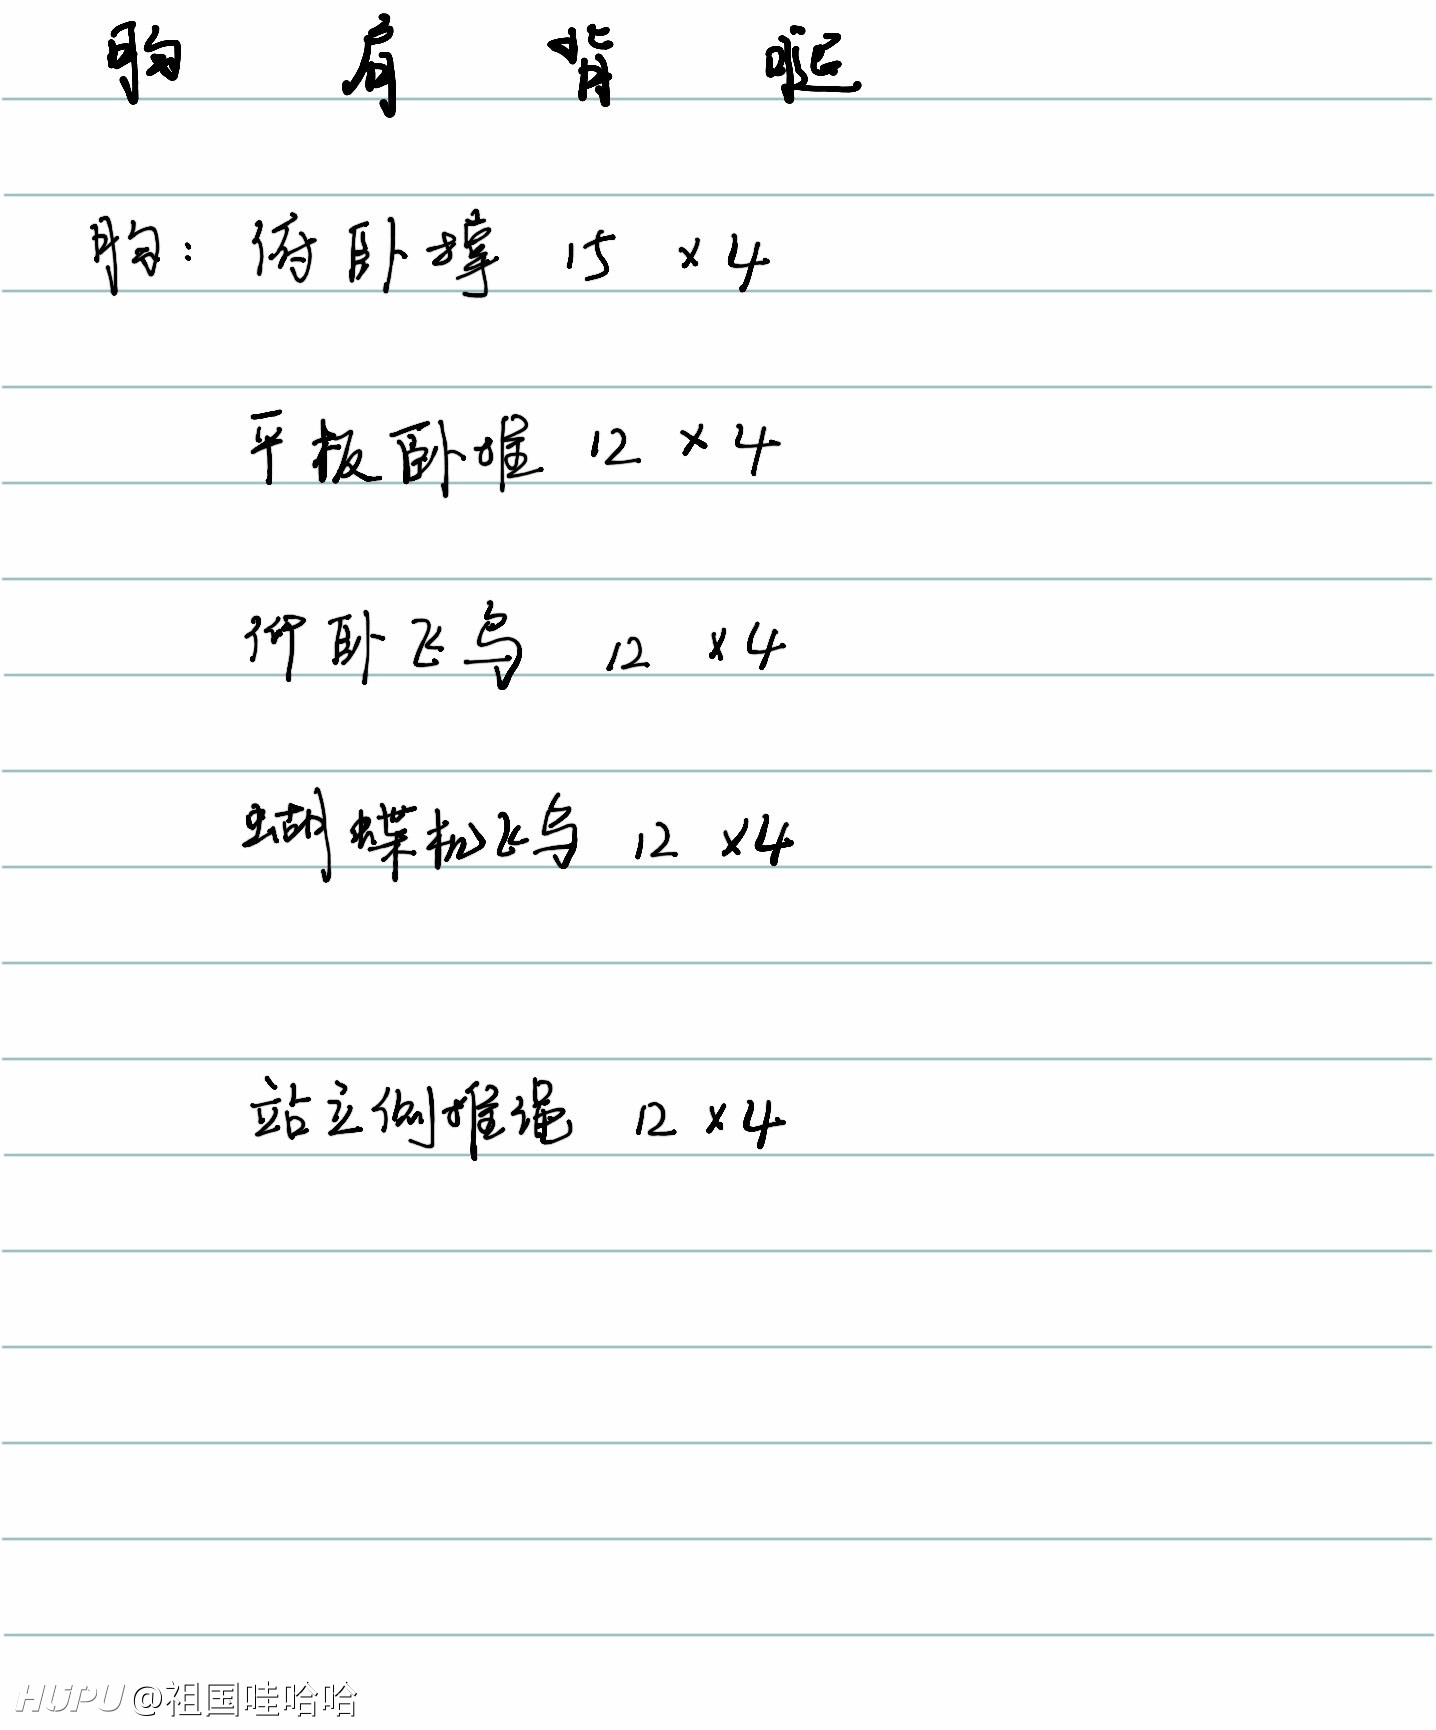 胸 肩 背 腿
胸：俯卧撑 15 ×4
平板卧推 12 ×4
仰卧飞鸟 12 ×4
蝴蝶机飞鸟 12 ×4
站立侧推绳 12 ×4
HUPU @祖国哇哈哈